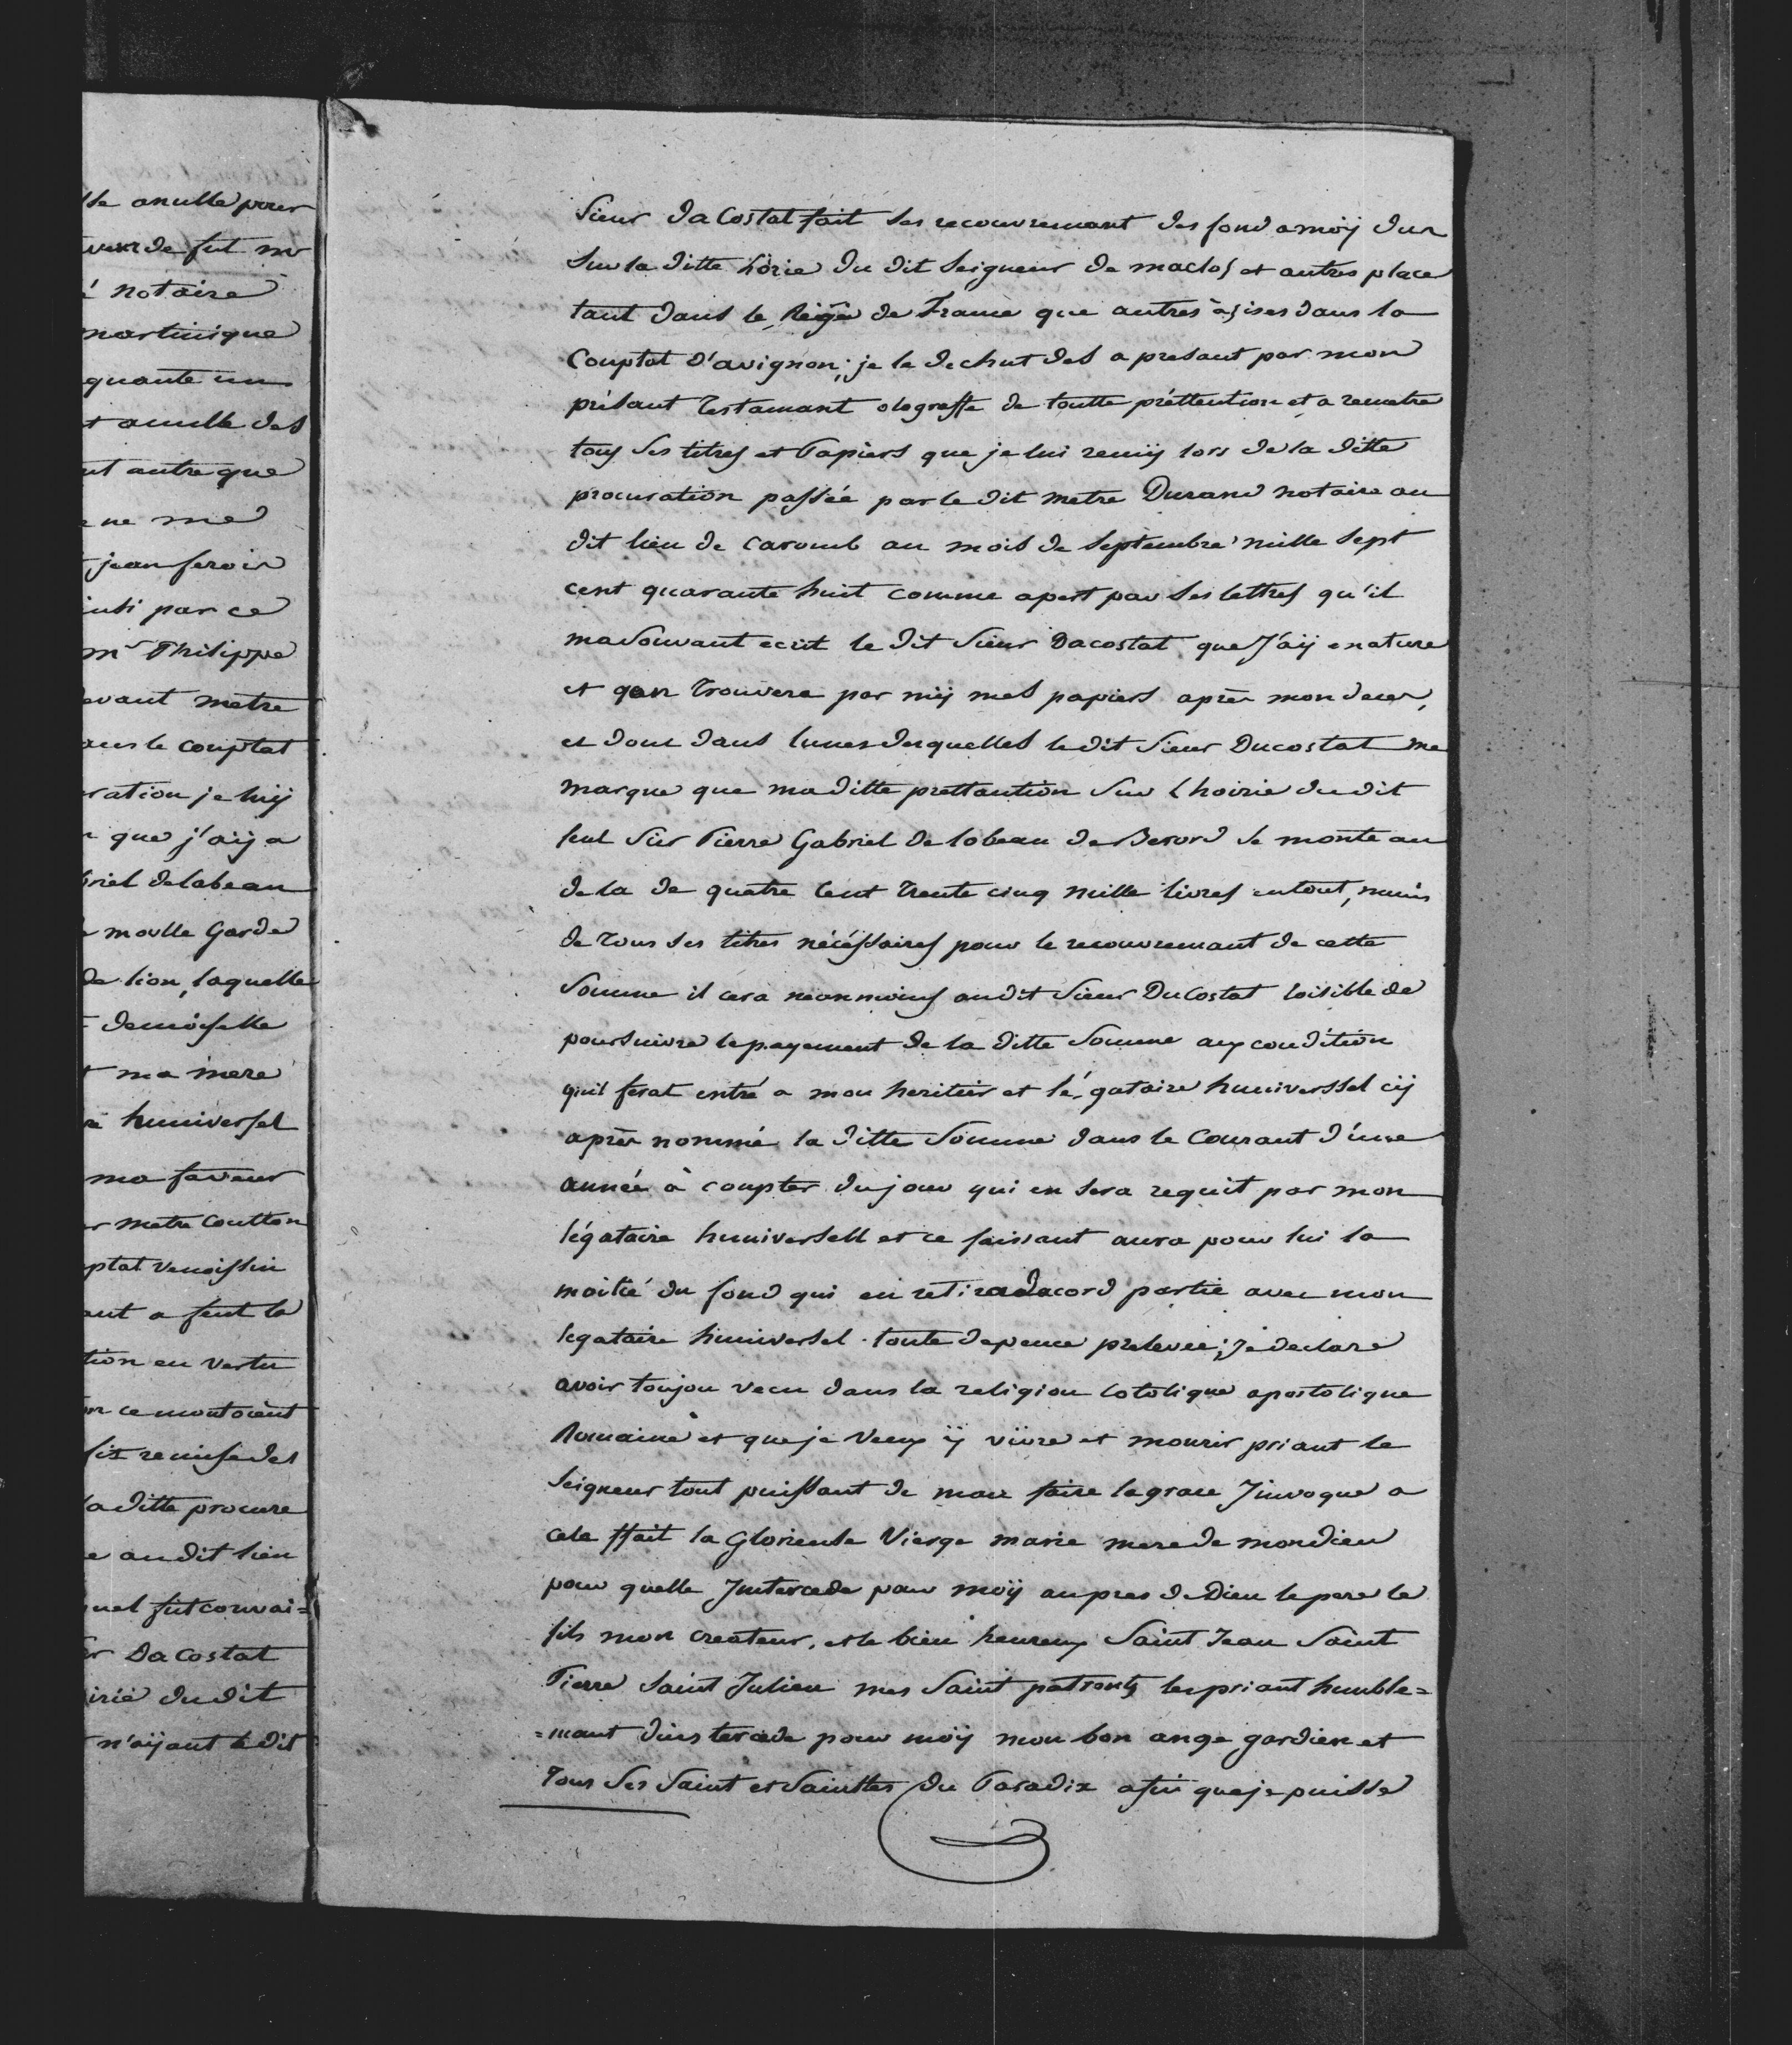 lle anulle pour
de fut
notaire
martinique
quante un
et anulle des
ut autre que
ne me
jean serois
insi par ce
mr Philippe
devant metre
dans le comptat
ration je luij
que j'aij a
briel delabeau
moulle Garde
de lion, laquelle
demoiselle
ma mere
huniversel
ma faveur
metre Coutton
ptat venaissin
ant a feut la
tion en vertu
ce montoient
fit remise des
la ditte procure
e au dit lieu
quel fut convai=
Da costat
irie du dit
n'aijant le dit
Sieur Da Costat fait ses recouvremant des fond a moij dus
Sur la ditte horie du dit Seigneur de maclos et autres place
tant dans le de France que autres asises dans la
Comptat d'avignon; je le dechut des a presant par mon
présant testamant olograffe de toutte préttention et a remetre
tous ses titres et Papiers que je lui remij lors de la ditte
procuration passée par le dit metre Durand notaire au
dit lieu de caromb au mois de Septembre mille sept
cent quarante huit comme apert par ses lettres qu'il
ma Souvant ecrit le dit Sieur Dacostat que J'aij enature
et qan trouvera par mij mes papiers après mon deces,
et dont dans lunes desquelles le dit Sieur Ducostat me
marque que maditte prettantion Sur Lhoirie du dit
feut Sier Pierre Gabriel de lobeau de Berord se monte au
de la de quatre Cent trente cinq mille livres entout, munis
de tous ses titres nécéssaires pour le recouvremant de cette
Somme il cera neanmoins audit Sieur DuCostat loisible de
poursuivre le payement de la ditte Somme aux condition
quil ferat entré a mon heritier et légataire huniverssel cij
après nommé la ditte Somme dans le Courant d'une
année à coupter du jour qui en sera requit par mon
légataire huniversell et ce faisant aura pour lui la
moitié du fond qui en retira dacord partie avec mon
legataire huniversel toute depence prelevée; Je declare
avoir toujou vecu dans la religion Catolique apostolique
Romaine et que je Veux ij vivre et mourir priant le
Seigneur tout puissant de men faire la grace Jinvoque a
cela ffait la Glorieuse Vierge marie mere de mondieu
pour quelle Jntercede pour moij aupres de Dieu le pere le
fils mon createur, et le bien heureux Saint Jean Saint
Pierre Saint Julien mes Saint patrons les priant humble=
=mant dins tercede pour moij mon bon ange gardien et
Tous Ses Saint et Sainttes du Paradix afin que je puisse